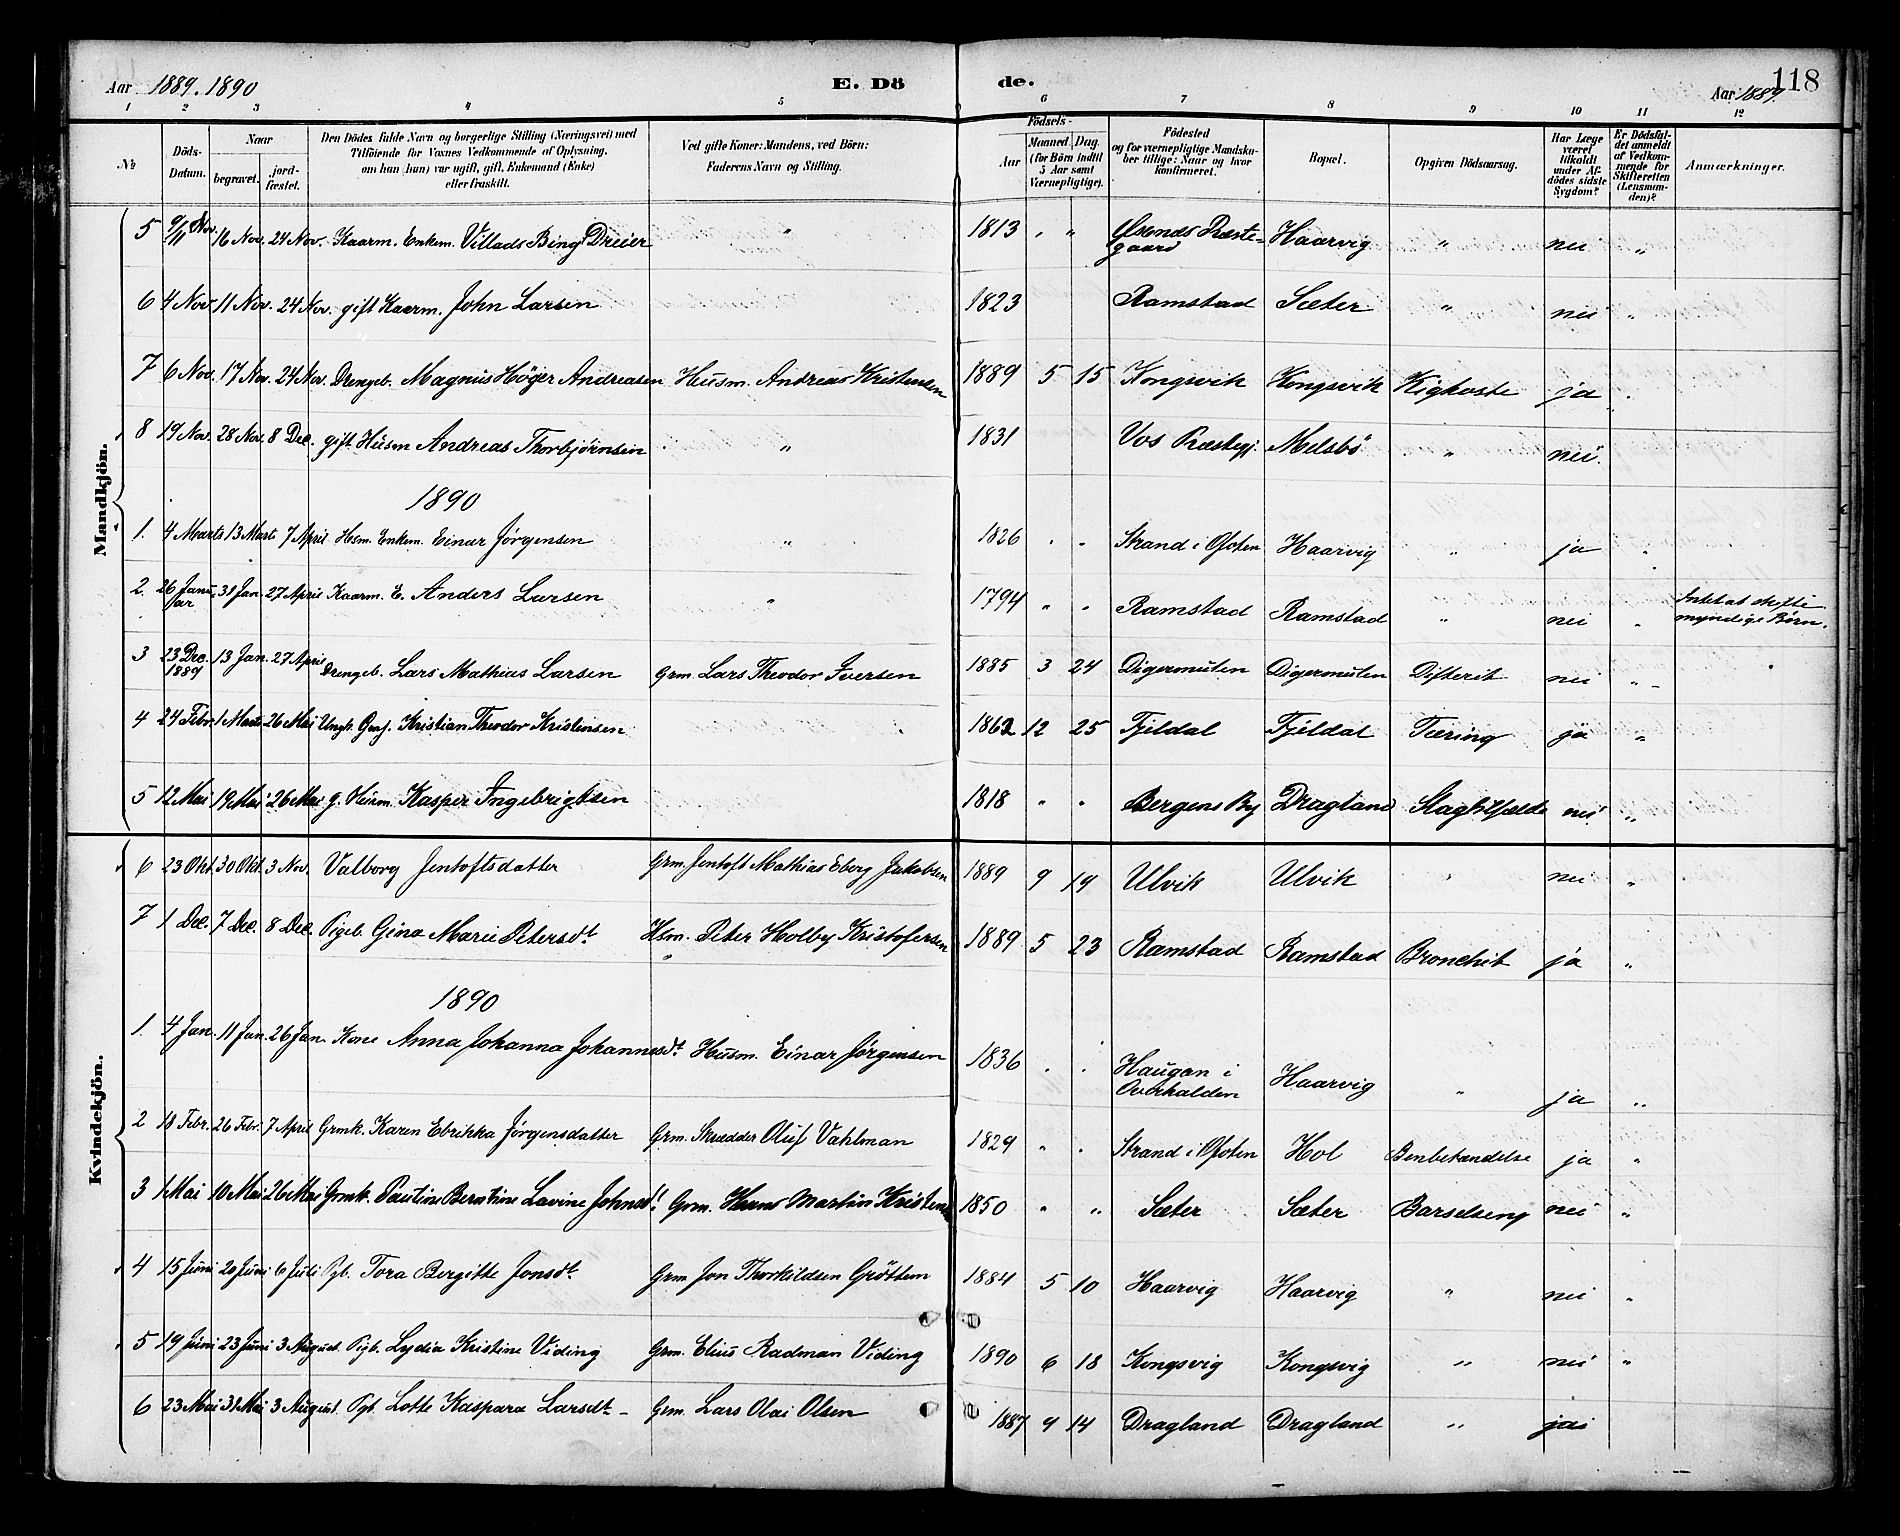 Aar 1889. 1890
E. Dö
de.
Aar 1889.
118
1 2 3 4 5 6 7 8 9 10 11 12
№
Döds-
Datum.
Naar
begravet.
jord-
fæstet.
Den Dödes fulde Navn og borgerlige Stilling (Næringsvei) med
Tilföiende for Voxnes Vedkommende af Oplysning,
om han (hun) var ugift, gift, Enkemand (Enke)
eller fraskilt.
Ved gifte Koner: Mandens, ved Börn:
Faderens Navn og Stilling.
Födsels-
Aar
Maaned. Dag.
(for Börn indtil
5 Aar samt
Værnepligtige).
Födested
og for værnepligtige Mandska-
ber tillige: Naar og hvor
konfirmeret.
Bopæl.
Opgiven Dödsaarsag.
Har Læge
været
tilkaldt
under Af-
dödes sidste
Sygdom?
Er Dödsfal-
det anmeldt
af Vedkom-
mende for
Skifteretten
(Lensman-
den)?
Anmærkninger.
Mandkjön.
5 9/11 Nov. 16 Nov. 24 Nov. Kaarm. Enkem. Villads Bing Dreier " 1813 " " Præste-
gaard Haarvig " nei "
6 4 Nov 11 Nov. 24 Nov. gift Kaarm. John Larsen 1823 Ramstad Sæter " nei "
7 6 Nov. 17 Nov. 24 Nov. Drengeb. Magnus Höger Andreasen Husm. Andreas Kristensen 1889 5 15 Kongsvik Kongsvik Kighoste ja "
8 19 Nov. 28 Nov. 8 Dec. gift Husm Andreas Thorbjørnsen " 1831 Vos Præstegj. Melsbö " nei.
1890
1. 4 Marts 13 Marts 7 April Hsm. Enkem. Einar Jørgensen " 1826 " " Strand i Ofoten Haarvig " ja "
2. 26 Janu-
ar 31 Jan. 27 April Kaarm. E. Anders Larsen " 1794 " " Ramstad Ramstad " nei " Intet at skifte
myndige Børn.
3 23 Dec.
1889 13 Jan. 27 April Drengeb. Lars Mathias Larsen Grm. Lars Theodor Iversen 1885 3 24 Digermulen Digermulen Difterit nei "
4 24 Febr 1 Marts 26 Mai Ungk. Gmf. Kristian Theodor Kristensen 1862 12 25 Fjeldal Fjeldal Tæring ja "
5 12 Mai 19 Mai 26 Mai g. Husm. Kasper Ingebrigtsen 1818 " " Bergens By Dragland Slagtilfælde nei "
Kvindekjön.
6 23 Okt 30 Okt. 3 Nov. Valborg Jentoftsdatter Grm. Jentoft Mathias Eberg Jakobsen 1889 9 19 Ulvik Ulvik " nei "
7 1 Dec. 7 Dec. 8 Dec. Pigeb. Gina Marie Petersdt. Hsm. Peter Holby Kristofersen 1889 5 23 Ramstad Ramstad Bronchit ja "
1890
1. 4 Jan. 11 Jan. 26 Jan. Kone Anna Johanna Johannesdt. Husm. Einar Jørgensen 1836 " " Haugan i
Overhalden Haarvig " ja "
2 18 Febr. 26 Febr. 7 April Grmk. Karen Ebrikka Jørgensdatter Grm. Skrædder Oluf Vahlman 1829 " " Strand i Ofoten Hol Benbetændelse ja "
3 1 Mai 10 Mai 26 Mai Grmk. Pauline Berntine Lavine Johnsdt. Grm. Hans Martin Kristens 1850 " " Sæter Sæter Barselseng nei "
4 15 Juni 20 Juni 6 Juli Pgb. Tora Bergitte Jonsdt. Grm Jon Thorkildsen Grøttem 1884 5 10 Haarvig Haarvig " nei "
5 19 Juni 23 Juni 3 August. Pigb. Lydia Kristine Viding Grm. Elius Radman Viding 1890 6 18 Kongsvig Kongsvig " nei "
6 23 Mai 31 Mai 3 August. Pgb. Lotte Kaspara Larsdt. Grm. Lars Olai Olsen 1887 9 14 Dragland Dragland " jai